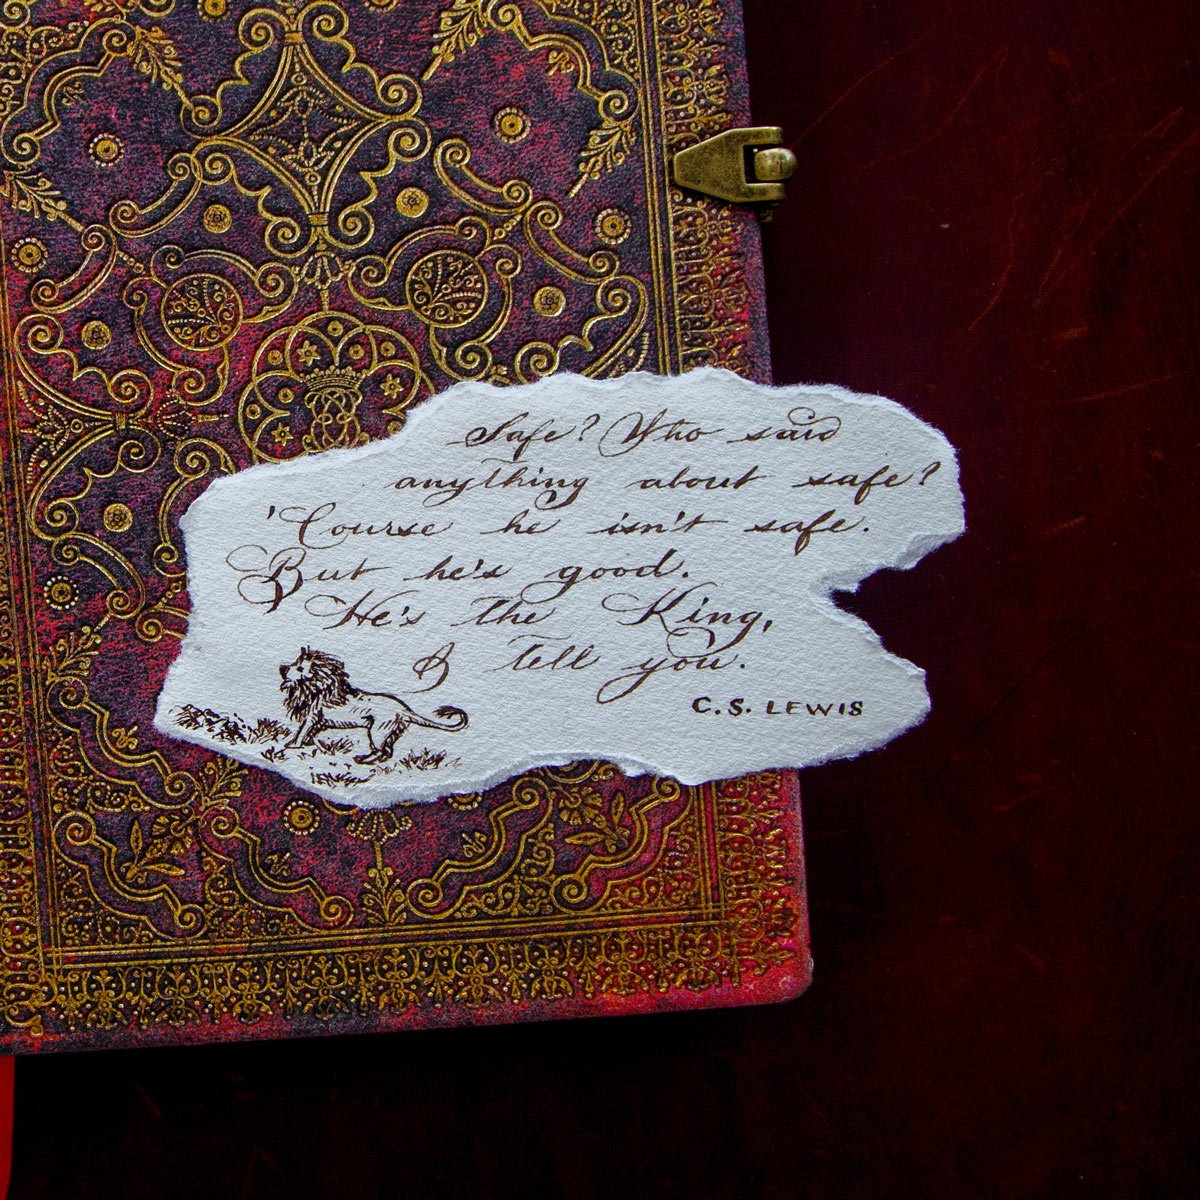 Safe? Who said
anything about safe?
'Course he isn't safe.
But he's good.
He's the King,
I tell you.
C.S. LEWIS